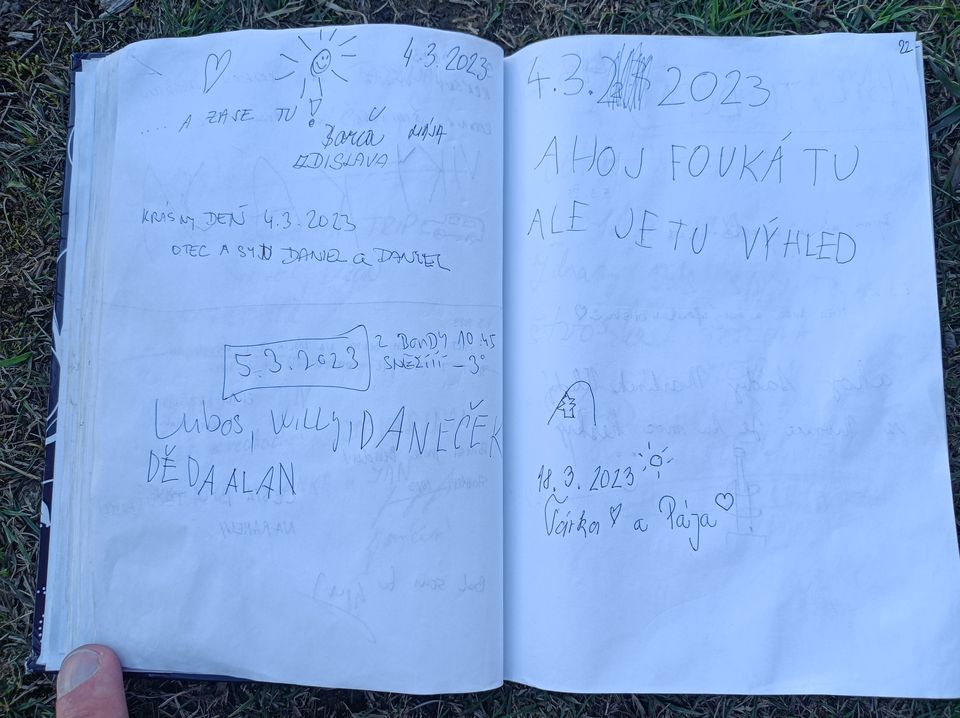 4.3.2023
.... A ZASE TU!
Barča LUMÍJA
ZDISLAVA
KRÁSNÝ DEŇ 4.3.2023
OTEC A SYN DANIEL a DANIEL
5.3.2023
Z BONDY 10:45
SNEŽÍÍÍ -3°
Luboš, WILLY, DANEČEK
DĚDA ALAN
22
4.3. 2023
AHOJ FOUKÁ TU
ALE JE TU VÝHLED
18.3.2023
Šárka a Pája